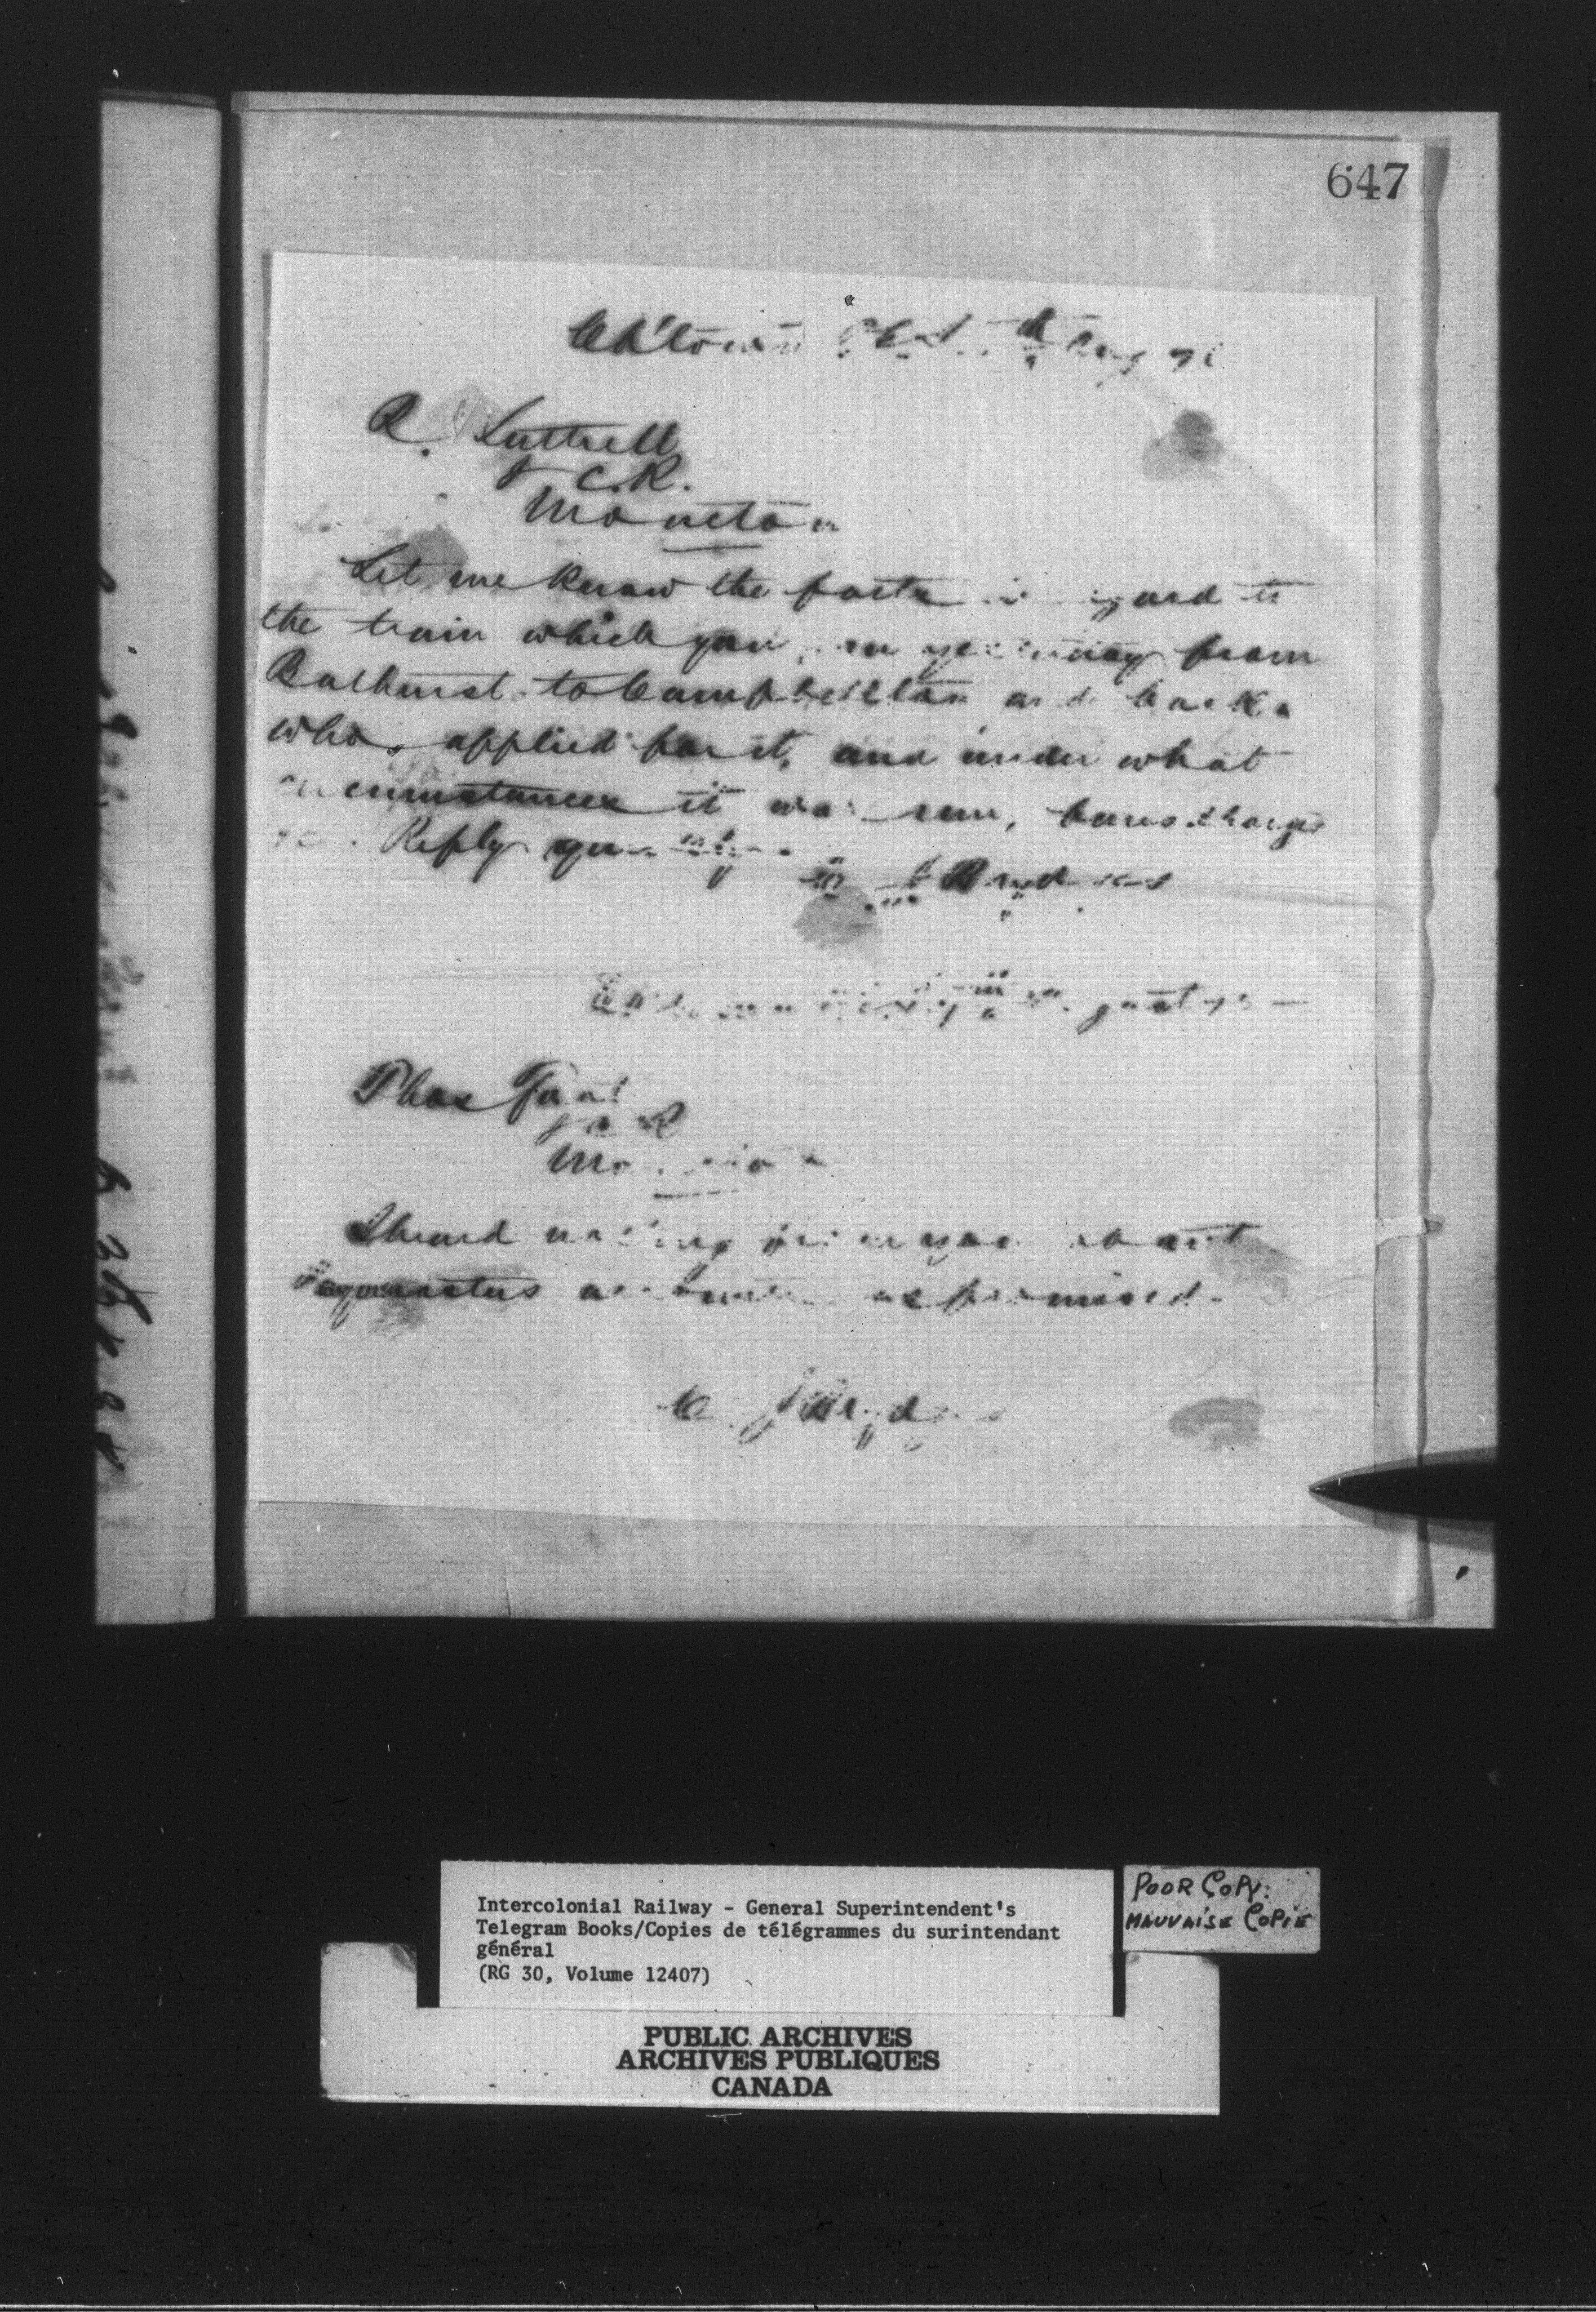 647
Ch'town P.E.I. Aug
R. Luttrell
I.C.R.
Moncton
Let me know the facts in regard to
the train which you ran yesterday from
Bathurst to Campbellton and back.
who applied for it, and under what
circumstances it was run, hours charges
&c. Reply quickly.
C J Brydges
Thos Foot
Moncton
I heard nothing from you about
Paymasters as promised.
C J Brydges
Intercolonial Railway - General Superintendent's
Telegram Books/Copies de télégrammes du surintendant
général
(RG 30, Volume 12407)
POOR COPY:
MAUVAISE COPIE
PUBLIC ARCHIVES
ARCHIVES PUBLIQUES
CANADA